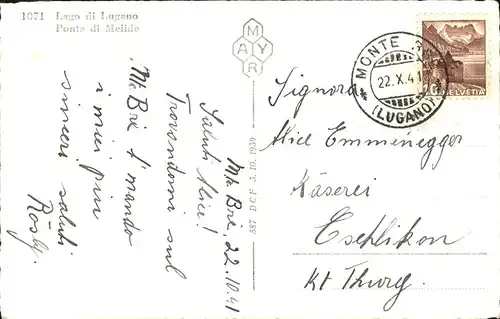 1071 Lago di Lugano
Ponte di Melide
MAYR
587 D C F 3. 10. 1939
Mte Bre, 22.10.41
Saluti Alice!
Trovandomi sul
Mte Bre t'mando
i miei piu
sinceri saluti
Rösly.
MONTE BRÈ
22.X.41
(LUGANO)
HELVETIA
Signora
Alice Emmenegger
Käserei
Eschlikon
Kt Thurg.